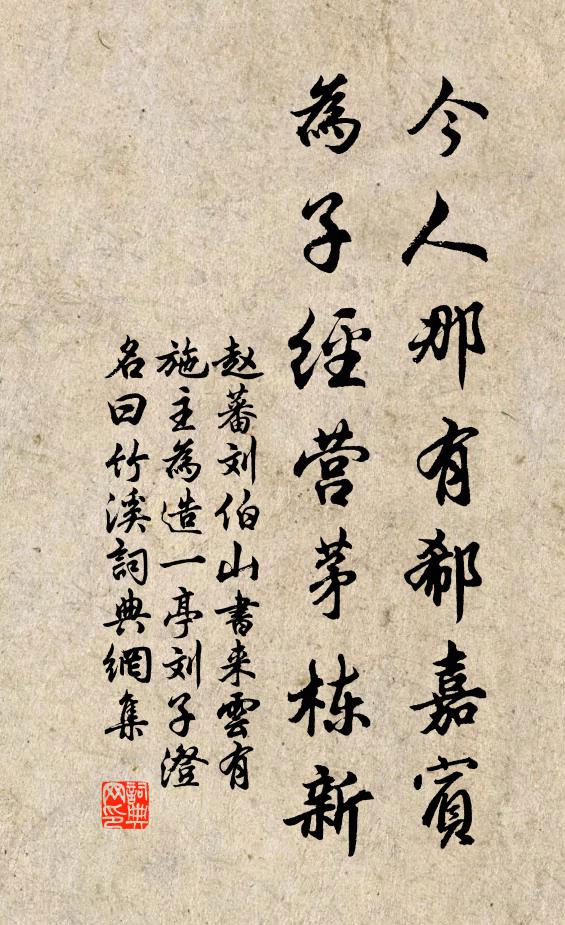 今人那有郗嘉賓
為子經营茅栋新
赵蕃刘伯山書来雲有
施主為造一亭刘子澄
名曰竹溪詞典網集
詞典网印